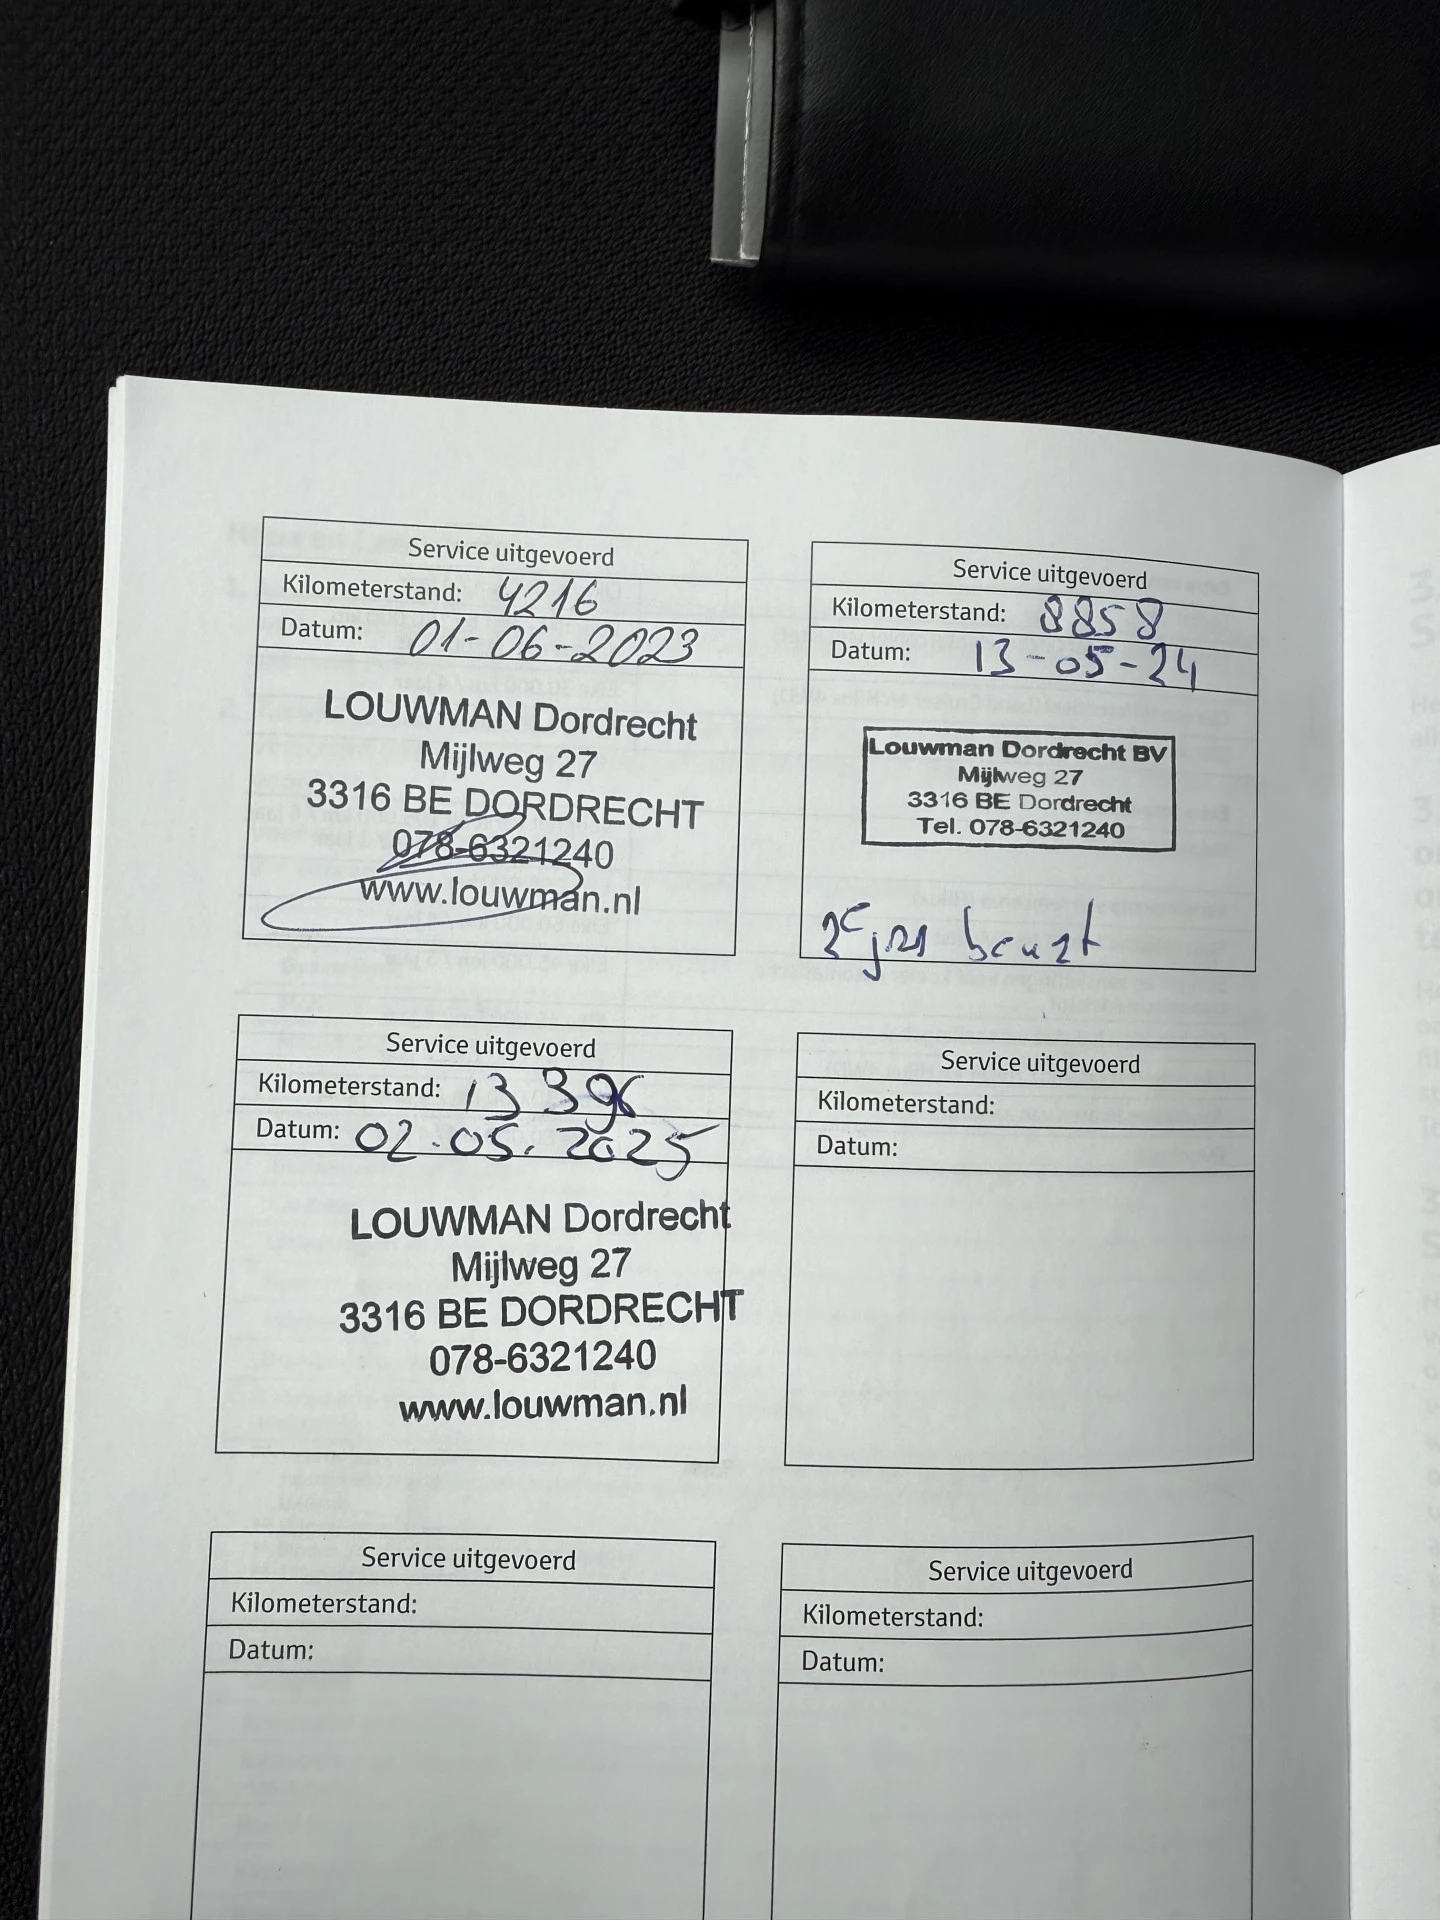 Service uitgevoerd
Kilometerstand: 4216
Datum: 01-06-2023
LOUWMAN Dordrecht
Mijlweg 27
3316 BE DORDRECHT
078-6321240
www.louwman.nl
Service uitgevoerd
Kilometerstand: 8858
Datum: 13-05-24
Louwman Dordrecht BV
Mijlweg 27
3316 BE Dordrecht
Tel. 078-6321240
2e jrs beurt
Service uitgevoerd
Kilometerstand: 13 396
Datum: 02.05.2025
LOUWMAN Dordrecht
Mijlweg 27
3316 BE DORDRECHT
078-6321240
www.louwman.nl
Service uitgevoerd
Kilometerstand:
Datum:
Service uitgevoerd
Kilometerstand:
Datum:
Service uitgevoerd
Kilometerstand:
Datum: